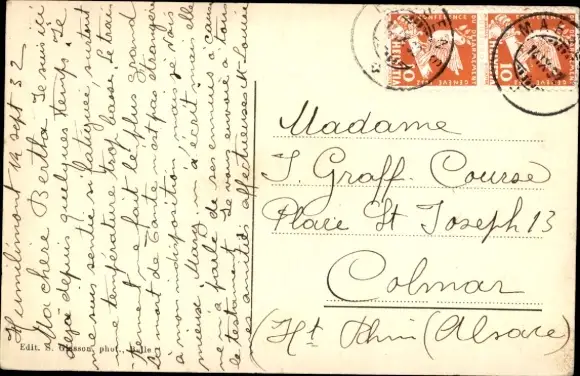 Humilimont 14 sept 32
Ma chère Bertha Je suis ici
déjà depuis quelques temps. Je
me suis sentie si fatiguée surtout
une température trop basse. Le train
m'a fait le plus grand
La mort de Tante n'est pas étrangère
à mon indisposition, mais je dois
Mary m'a écrit, mais elle
m'a parlé de ses ennuis à cause
testament. Je vous envoie à tous
les amitiés affectueuses M. Louise
Edit. S. Glasson, phot., Bulle
Madame
J. Graff-Course
Place St Joseph 13
Colmar
(Ht Rhin (Alsace)
CONFERENCE DU DESARMEMENT
GENEVE 1932
HELVETIA
10
10